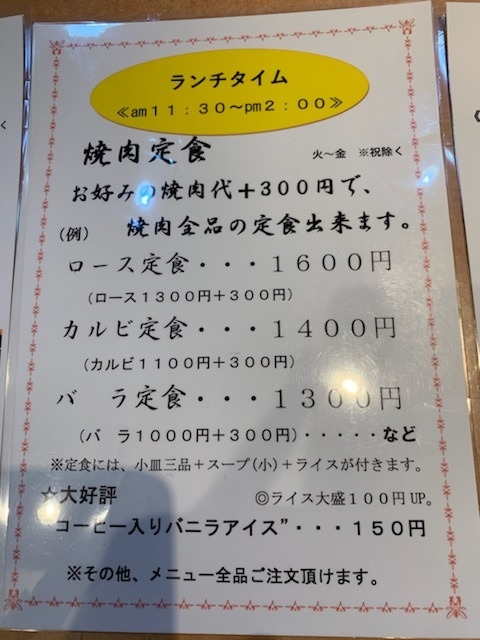 ランチタイム
≪am１１：３０～pm２：００≫
焼肉定食　火～金　※祝除く
お好みの焼肉代＋３００円で、
（例）　焼肉全品の定食出来ます。
ロース定食・・・１６００円
（ロース１３００円＋３００円）
カルビ定食・・・１４００円
（カルビ１１００円＋３００円）
バ　ラ定食・・・１３００円
（バ　ラ１０００円＋３００円）・・・・・など
※定食には、小皿三品＋スープ（小）＋ライスが付きます。
☆大好評　◎ライス大盛１００円UP。
コーヒー入りバニラアイス”・・・１５０円
※その他、メニュー全品ご注文頂けます。